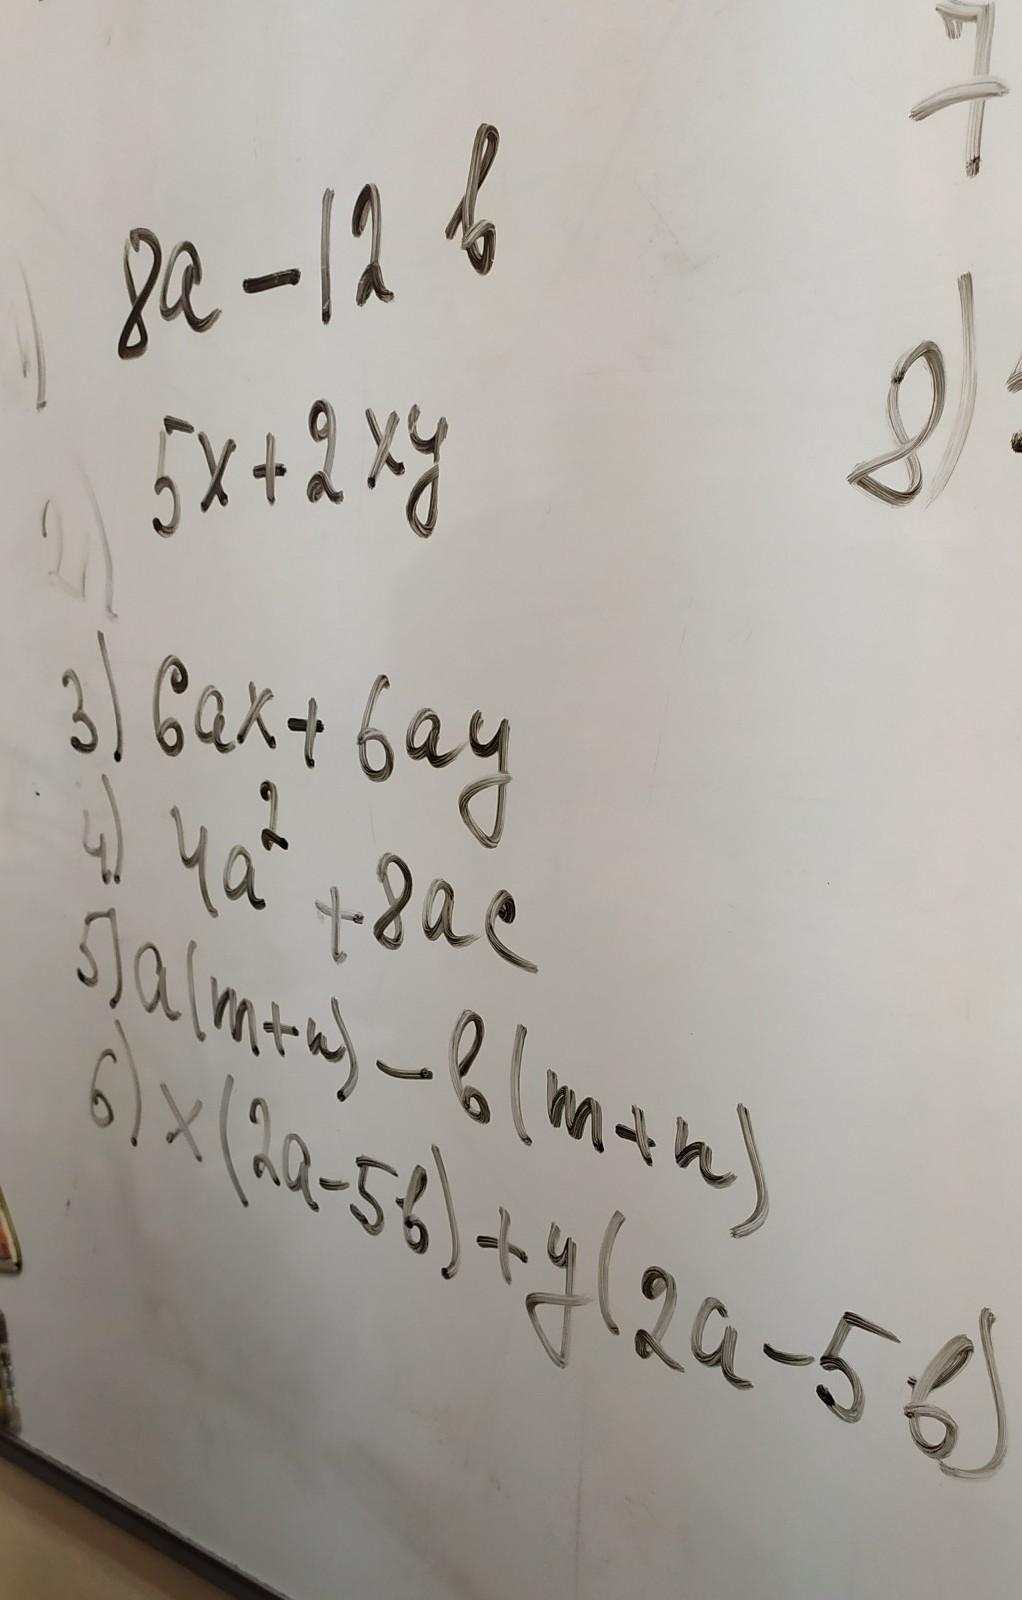 1) 8a - 12b
2) 5x + 2xy
3) 6ax + 6ay
4) 4a² + 8ac
5) a(m+n) - b(m+n)
6) x(2a-5b) + y(2a-5b)
7
8)